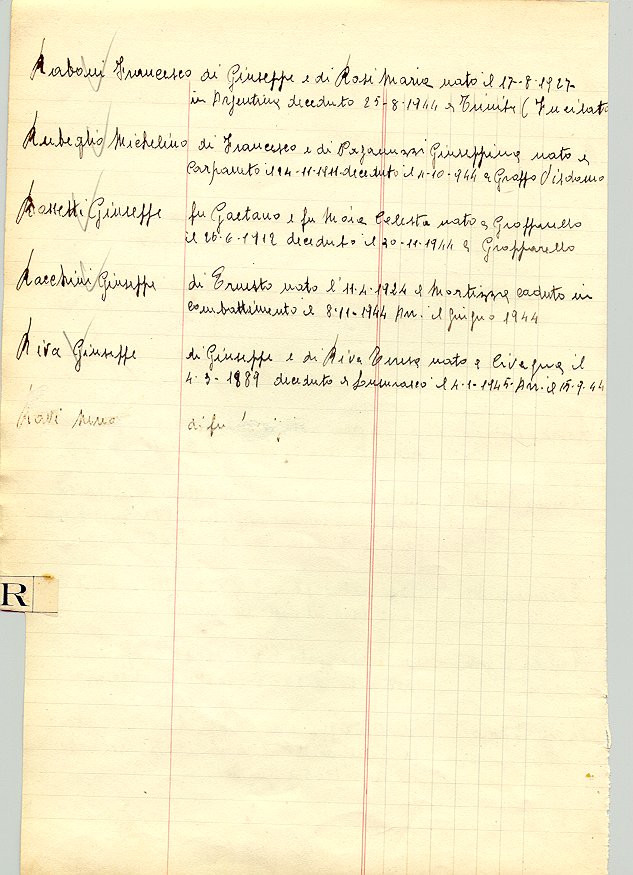 Raboni Francesco di Giuseppe e di Rosi Maria nato il 17-8-1927
in Argentina deceduto 25-8-1944 a (Fucilato
Rubeglio Michelino di Francesco e di Giuseppina nato a
Carpaneto il deceduto il 4-10-944 a Groppo Visdomo
Rossetti Giuseppe fu Gaetano e fu Maria Celesta nato a Gropparello
il 26-6-1912 deceduto il 30-11-1944 a Gropparello
Racchini Giuseppe di Ernesto nato l'11-4-1924 a Mortizza caduto in
combattimento il 8-11-1944 Arr. il giugno 1944
Riva Giuseppe di Giuseppe e di Riva Teresa nato a il
4-3-1889 deceduto a il 4-1-1945 Arr. il 15-9-44
di fu
R